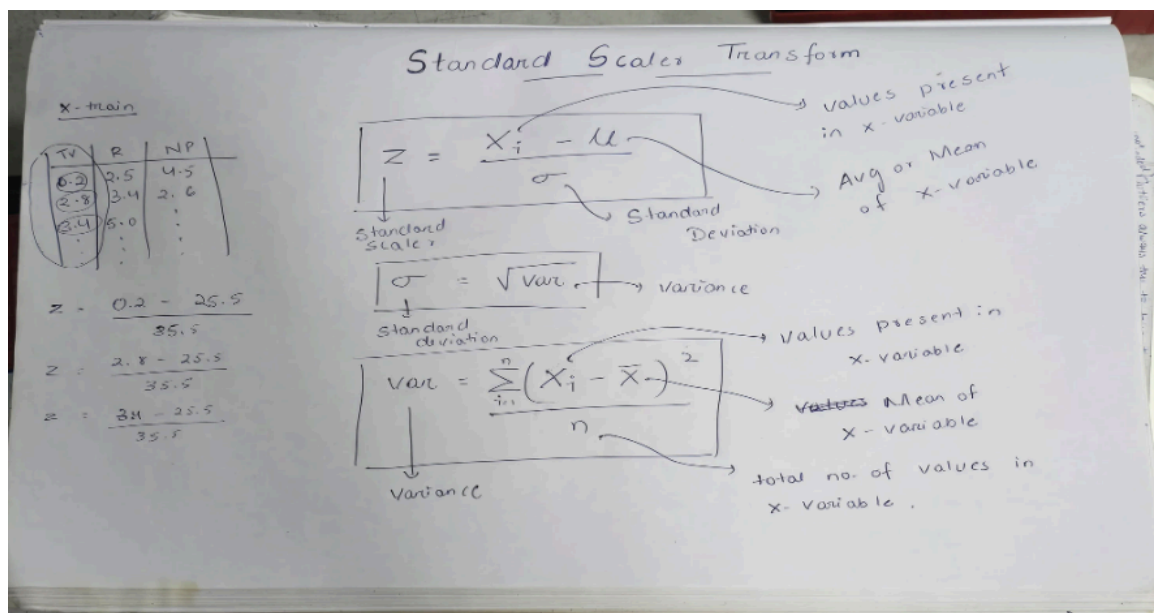 Standard Scaler Transform
X-train
TV R NP
0.2 2.5 4.5
2.8 3.4 2.6
3.4 5.0
z = 0.2 - 25.5
35.5
z = 2.8 - 25.5
35.5
z = 34 - 25.5
35.5
Z = Xi - μ
σ
values present
in x-variable
Avg or Mean
of x-variable
Standard
Scaler
Standard
Deviation
σ = √var
variance
Standard
deviation
var = n Σ i=1 (Xi - x̄)2
n
values present in
x-variable
values Mean of
x-variable
total no. of values in
x-variable.
variance